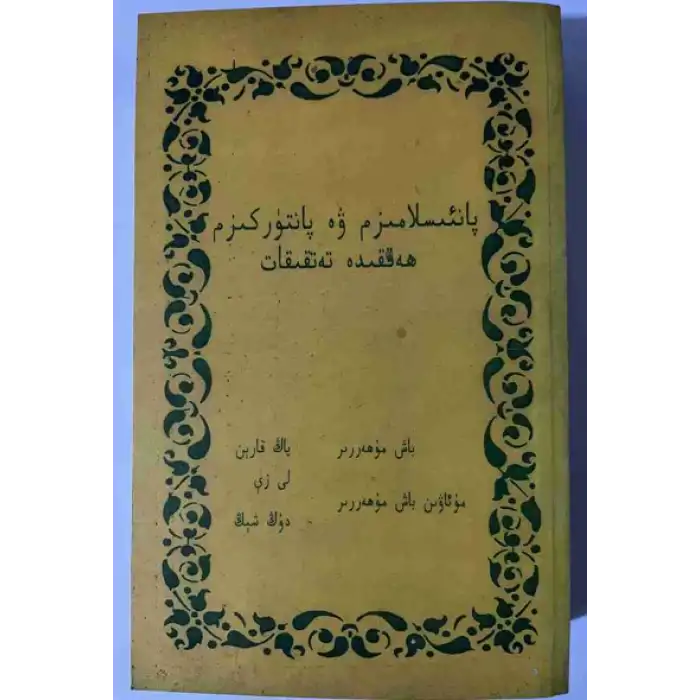 پانئىسلامىزم ۋە پانتۈركىزم
ھەققىدە تەتقىقات
باش مۇھەررىر ياڭ فاربن
مۇئاۋىن باش مۇھەررىر لى زې
دۇڭ شېڭ